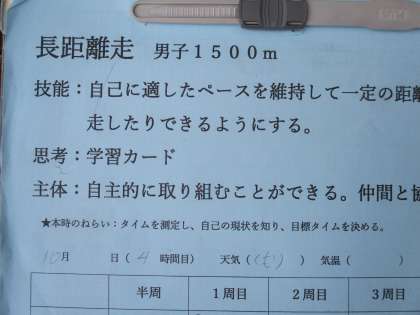 長距離走 男子１５００ｍ
技能：自己に適したペースを維持して一定の距離
走したりできるようにする。
思考：学習カード
主体：自主的に取り組むことができる。仲間と協
★本時のねらい：タイムを測定し、自己の現状を知り、目標タイムを決める。
10月 日（ 4 時間目） 天気（くもり） 気温（ ）
半周 １周目 ２周目 ３周目